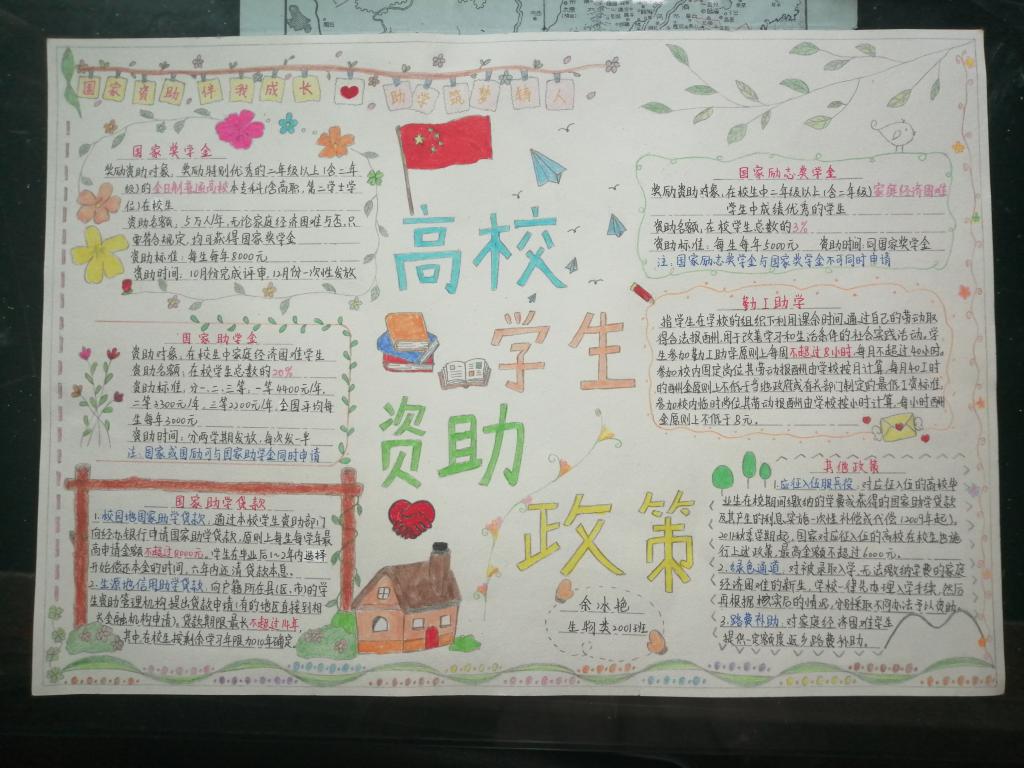 国家资助 伴我成长
助学筑梦铸人
国家奖学金
奖励资助对象，奖励特别优秀的二年级以上(含二年
级)的全日制普通高校本专科(含高职，第二学士学
位)在校生
资助名额，5万人/年，无论家庭经济困难与否，只
要符合规定，均可获得国家奖学金
资助标准：每生每年8000元
资助时间：10月份完成评审，12月份一次性发放
国家助学金
资助对象，在校生中家庭经济困难学生
资助名额：在校学生总数的20%
资助标准，分一、二、三等，一等4400元/年，
二等3300元/年，三等2200元/年，全国平均每
生每年3000元
资助时间：分两学期发放，每次发一半
注：国家或国励可与国家助学金同时申请
国家助学贷款
1.校园地国家助学贷款，通过本校学生资助部门
向经办银行申请国家助学贷款，原则上每生每学年最
高申请金额不超过8000元，学生在毕业后1~2年内选择
开始偿还本金的时间，六年内还清贷款本息。
2.生源地信用助学贷款，向户籍所在县(区、市)的学
生资助管理机构提出贷款申请(有的地区直接到相
关金融机构申请)。贷款期限最长不超过14年
其中在校生按剩余学习年限加10年确定
高校
学生
资助
政策
余冰艳
生物类2001班
国家励志奖学金
奖励资助对象，在校生中二年级以上(含二年级)家庭经济困难
学生中成绩优秀的学生
资助名额，在校学生总数的3%
资助标准：每生每年5000元 资助时间：同国家奖学金
注：国家励志奖学金与国家奖学金不可同时申请
勤工助学
指学生在学校的组织下利用课余时间，通过自己的劳动取
得合法报酬，用于改善学习和生活条件的社会实践活动。学
生参加勤工助学原则上每周不超过8小时，每月不超过40小时。
参加校内固定岗位其劳动报酬由学校按月计算，每月40工时
的酬金原则上不低于当地政府或有关部门制定的最低工资标准，
参加校内临时岗位其劳动报酬由学校按小时计算，每小时酬
金原则上不低于8元。
其他政策
1.应征入伍服兵役，对应征入伍的高校毕
业生在校期间缴纳的学费或获得的国家助学贷款
及其产生的利息，实施一次性补偿或代偿(2009年起)。
2011秋季学期起，国家对应征入伍的高校在校生也施
行上述政策，最高金额不超过6000元。
2.绿色通道，对被录取入学、无法缴纳学费的家庭
经济困难的新生，学校一律先办理入学手续，然后
再根据核实后的情况，分别采取不同办法予以资助。
3.路费补助，对家庭经济困难学生
提供一定额度返乡路费补助。